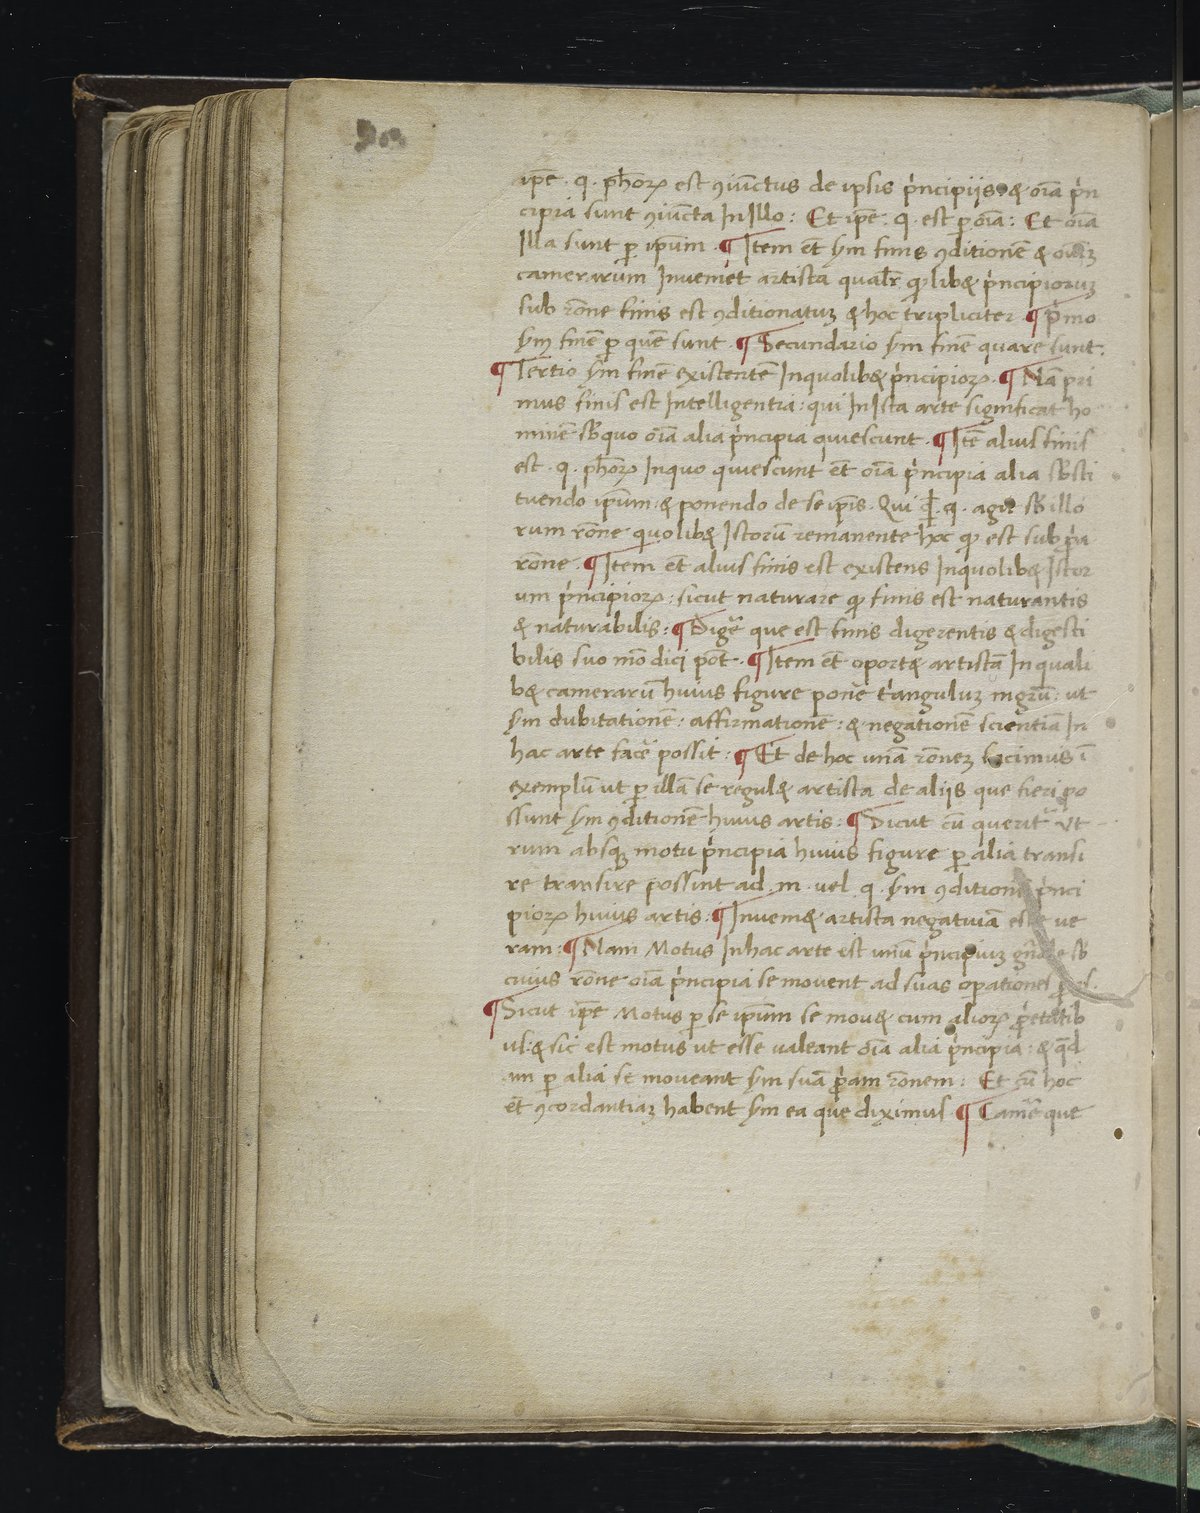 ipē · q · ph̄orꝝ est ꝯiūctus de ipsis p̍ncipijs · & oīa p̍n
cipia sunt ꝯiūcta In Illo : Et ipē · q · est ꝑ oīa : Et oīa
Illa sunt ꝑ ipūm · ¶ Item et̄ sm̄ finis ꝯditionē &
camerarum Inveniet artista qualr̄ qđlib& p̍ncipiorum
sub rōne finis est ꝯditionatuꝫ & hoc tripliciter ¶ p̍mo
sm̄ finē ꝑ quē sunt · ¶ Secundario sm̄ finē quare sunt :
¶ Tertio sm̄ finē existentē In quolib& p̍ncipiorꝝ · ¶ Nā pri
mus finis est Intelligentia : qui In Ista arte significat ho
minē sb̄ quo oīa alia p̍ncipia quiescunt · ¶ Itē alius finis
est · q · ph̄orꝝ In quo quiescunt et̄ oīa p̍ncipia alia sb̄sti
tuendo ipūm & ponendo de se ipīs · Qui · q · agit sb̄ illo
rum rōne quolib& Istorū remanente hoc qđ est sub p̍pa
rōne · ¶ Item et̄ alius finis est existens In quolib& Istor
um p̍ncipiorꝝ : sicut naturare qđ finis est naturantis
& naturabilis : ¶ Digere que est finis digerentis & digesti
bilis suo mō dici pōt · ¶ Item et̄ oport& artistā In quali
b& camerarū huius figure ponē t̍angulum nigrū : ut
sm̄ dubitationē : affirmationē : & negationē scientiā In
hac arte facē possit : ¶ Et de hoc unā rōneꝫ facimus ī
exemplū ut ꝑ illā se regul& artista de aliis que fieri po
ssunt sm̄ ꝯditionē huius artis : ¶ Sicut cū querit Ut
rum absqꝫ motu p̍ncipia huius figure ꝑ alia transi
re transire possint ad · m · vel · q · sm̄ ꝯditionē p̍nci
piorꝝ huius artis : ¶ Inveni& artista negativā esse ve
ram : ¶ Nam Motus In hac arte est unū p̍ncipiuꝫ gn̄ale sb̄
cuius rōne oīa p̍ncipia se movent ad suas operationes
¶ Sicut ipē Motus ꝑ se ipūm se mov& cum aliorꝝ
us : & sic est motus ut esse valeant oīa alia p̍ncipia : &
ꝑ alia se moveant sm̄ suā p̍pam rōnem : Et cū hoc
et̄ ꝯcordantiaꝫ habent sm̄ ea que diximus ¶ Camere que